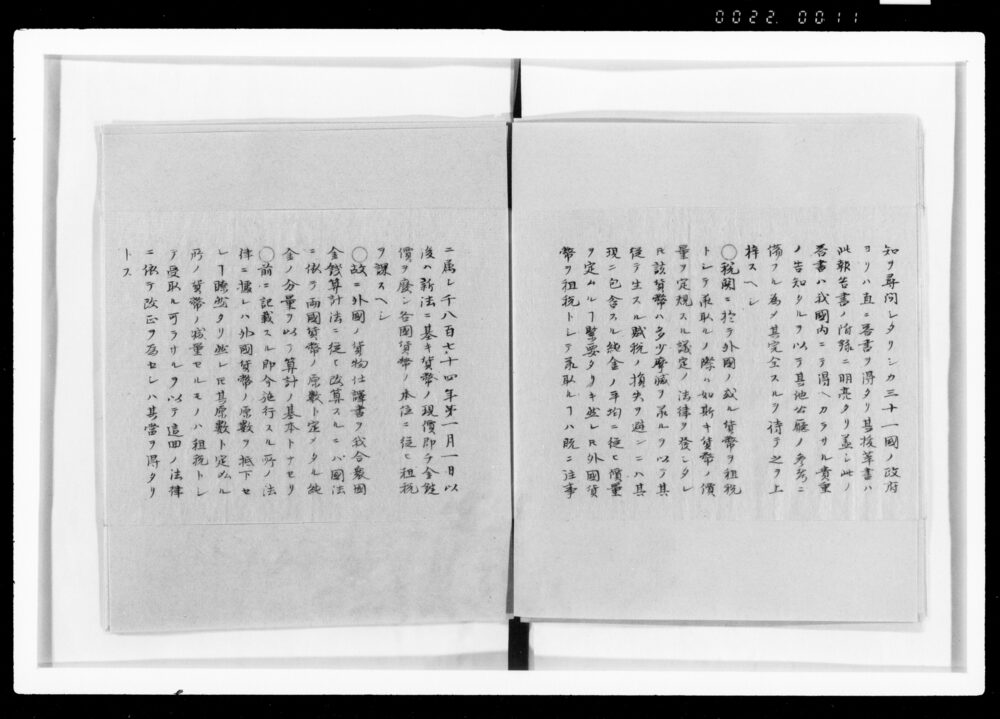 0022.0011
知ヲ尋問シタリシカ三十一國ノ政府
ヨリハ直ニ答書ヲ得タリ其抜萃書ハ
此報告書ノ附録ニ明亮タリ蓋シ此ノ
答書ハ我國内ニテ得ヘカラサル貴重
ノ告知タルヲ以テ其他公廳ノ参考ニ
備フル為メ其完全スルヲ待テ之ヲ上
梓スヘシ
〇税関ニ於テ外國ノ或ル貨幣ヲ租税
トシテ承取ルノ際ハ如斯キ貨幣ノ價
量ヲ定規スル議定ノ法律ヲ發シタレ
𪜈該貨幣ハ多少摩滅ヲ承ルヲ以テ其
従テ生スル賦税ノ損失ヲ避ンニハ其
現ニ包含スル純金ノ平均ニ従ヒ價量
ヲ定ムルヿ緊要タリキ然レ𪜈外國貨
幣ヲ租税トシテ承取ルヿハ既ニ往事
ニ属シ千八百七十四年第一月一日以
後ハ新法ニ基キ貨幣ノ現價即チ金銓
價ヲ廢シ各國貨幣ノ本位ニ従ヒ租税
ヲ課スヘシ
〇故ニ外國ノ貨物仕譯書ヲ我合衆國
金銭算計法ニ従テ改算スルニハ國法
ニ依テ両國貨幣ノ原数ト定メタル純
金ノ分量ヲ以テ算計ノ基本トナセリ
〇前ニ記載スル即今施行スル所ノ法
律ニ據レハ外國貨幣ノ原数ヲ抵下セ
シヿ瞭然タリ然レ𪜈其原数ト定ムル
所ノ貨幣ノ減量セルモノハ租税トシ
テ受取ル可ラサルヲ以テ這回ノ法律
ニ依テ改正ヲ為セシハ其當ヲ得タリ
トス